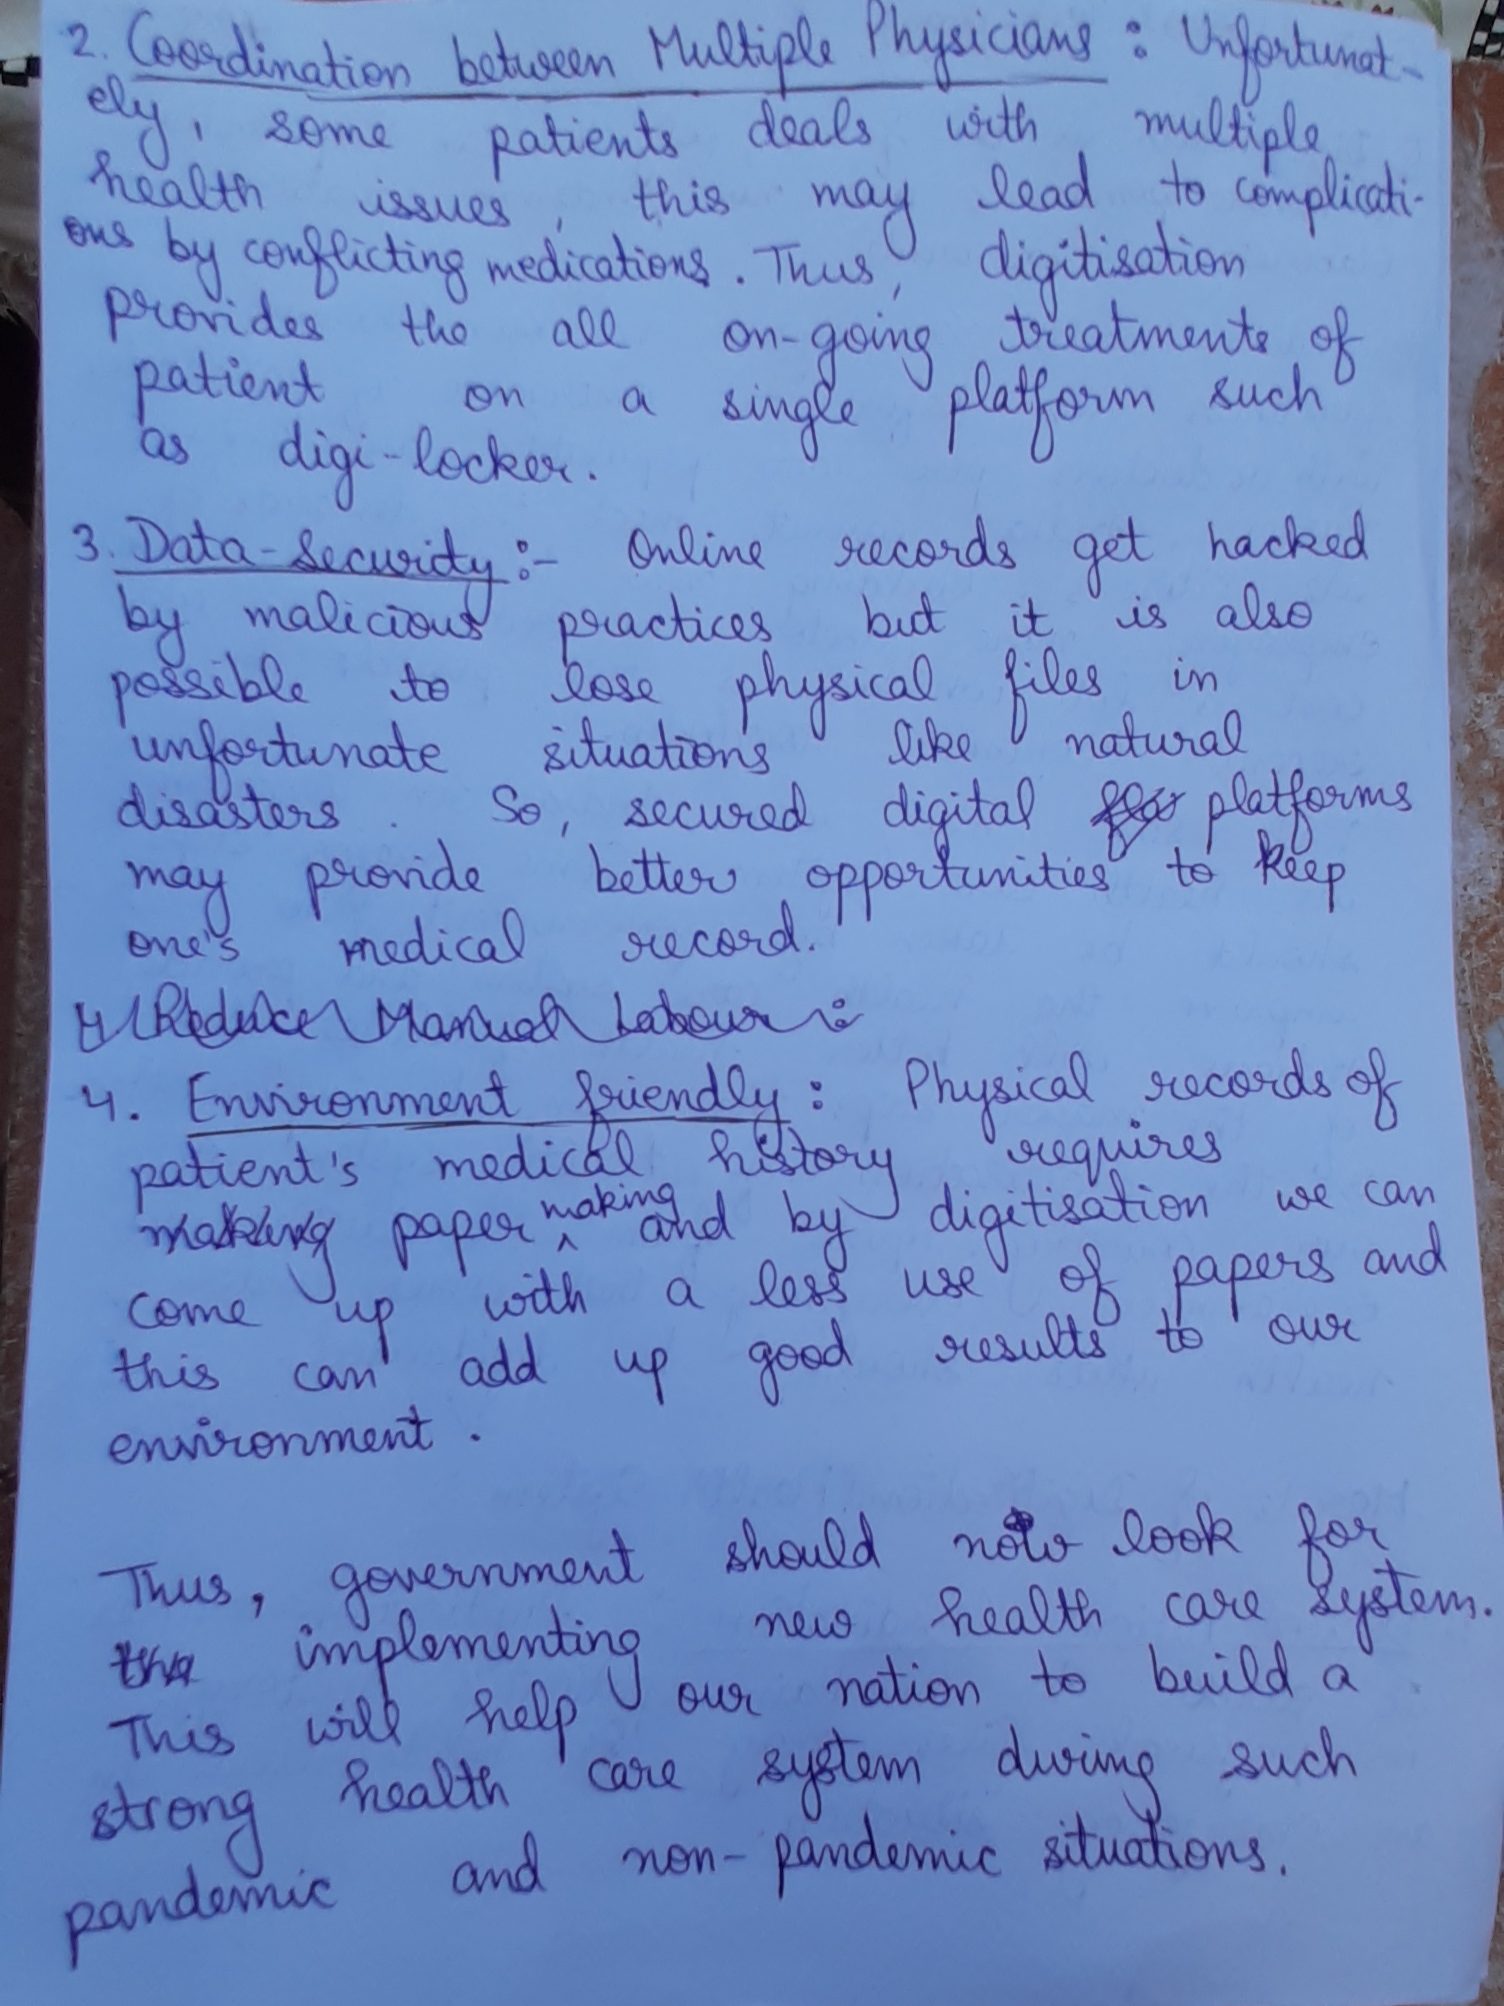 2. Coordination between Multiple Physicians : Unfortunat-
ely, some patients deals with multiple
health issues, this may lead to complicati-
ons by conflicting medications. Thus, digitisation
provides the all on-going treatments of
patient on a single platform such
as digi-locker.
3. Data-Security :- Online records get hacked
by malicious practices but it is also
possible to lose physical files in
unfortunate situations like natural
disasters. So, secured digital platforms
may provide better opportunities to keep
one's medical record.
4 Reduce Manual Labour :
4. Environment friendly : Physical records of
patient's medical history requires
making paper making and by digitisation we can
come up with a less use of papers and
this can add up good results to our
environment.
Thus, government should now look for
the implementing new health care system.
This will help our nation to build a
strong health care system during such
pandemic and non-pandemic situations.